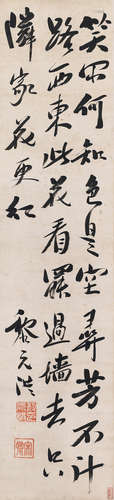 笑问何知色是空寻芳不计
路西东此花看罢过墙去只
隣家花更红
黎元洪